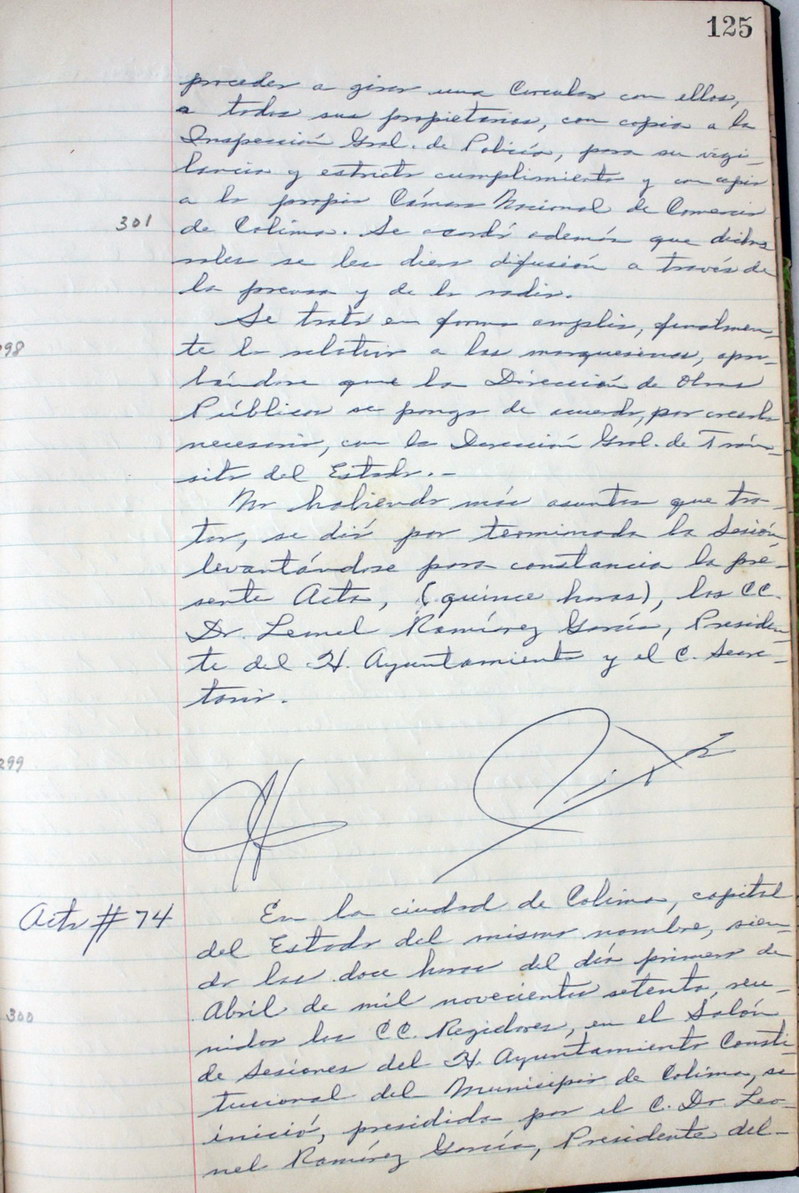 125
proceder a girar una Circular con ellos,
a todos sus propietarios, con copia a la
Inspección Gral. de Policía, para su vigi-
lancia y estricto cumplimiento y con copia
a la propia Cámara Nacional de Comercio
301
de Colima. Se acordó además que dichos
roles se les diera difusión a través de
la prensa y de la radio.
Se trató en forma amplia, finalmen-
298
te lo relativo a las marquesinas, apro-
bándose que la Dirección de Obras
Públicas se ponga de acuerdo, por creerlo
necesario, con la Dirección Gral. de Trán-
sito del Estado.-
No habiendo más asuntos que tra-
tar, se dió por terminada la Sesión
levantándose para constancia la pre-
sente Acta, (quince horas), los CC.
Dr. Leonel Ramírez García, Presiden-
te del H. Ayuntamiento y el C. Secre-
tario.
299
Acta # 74
En la ciudad de Colima, capital
del Estado del mismo nombre, sien-
do las doce horas del día primero de
Abril de mil novecientos setenta, reu-
300
nidos los CC. Regidores, en el Salón
de Sesiones del H. Ayuntamiento Consti-
tucional del Municipio de Colima, se
inició, presidida por el C. Dr. Leo-
nel Ramírez García, Presidente del-